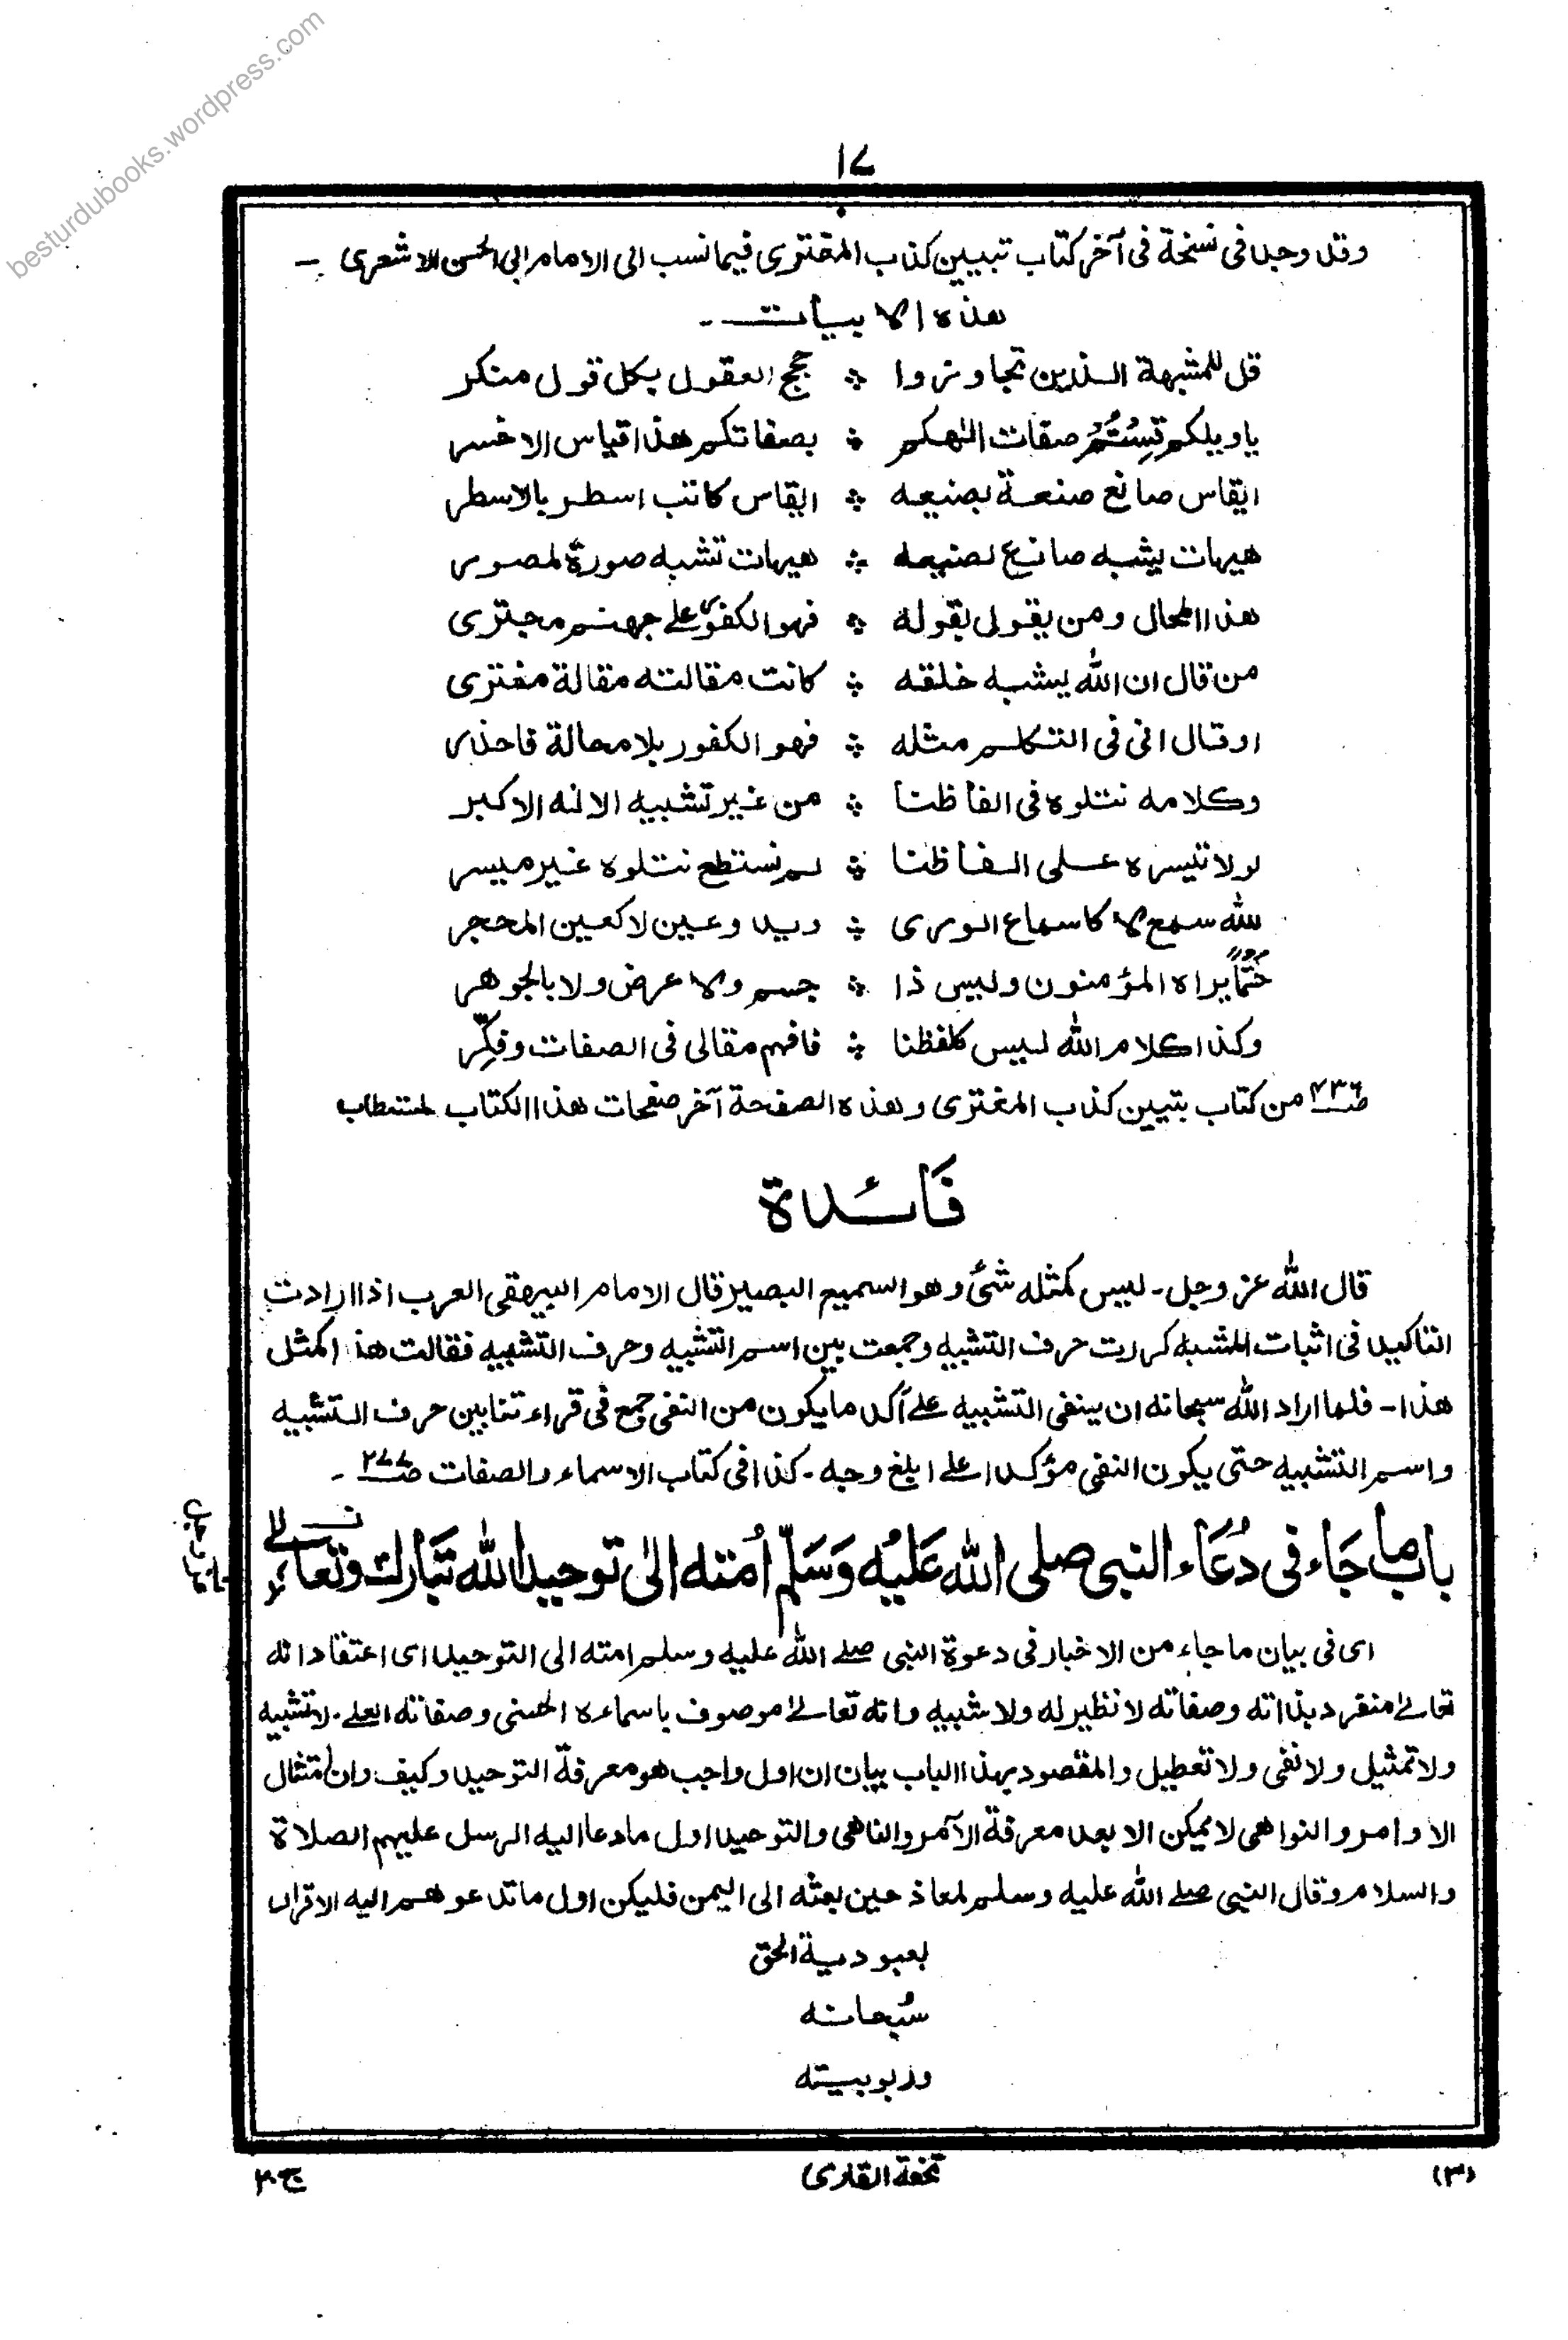 besturdubooks.wordpress.com
١٧
وقد وجد فى نسخة فى آخر كتاب تبيين كذب المفترى فيما نسب الى الامام ابى الحسن الاشعرى ۔
هذه الابيات ۔
قل للمشبهة الذين تجاوزوا ❖ حجج العقول بكل قول منكر
ياويلكم قِسْتُمُ صفات الٰهكم ❖ بصفاتكم هذا قياس الاخسر
ايقاس صانع صنعة بصنيعه ❖ ايقاس كاتب اسطر بالاسطر
هيهات يشبه صانع لصنيعه ❖ هيهات تشبه صورة لمصور
هذا المحال ومن يقول بقوله ❖ فهو الكفور على جهنم مجترى
من قال ان الله يشبه خلقه ❖ كانت مقالته مقالة مفترى
او قال انى فى التكلم مثله ❖ فهو الكفور بلا محالة فاحذر
وكلامه نتلوه فى الفاظنا ❖ من غير تشبيه الاله الاكبر
لولا تيسره على الفاظنا ❖ لم نستطع نتلوه غير ميسر
لله سمع لا كاسماع الورى ❖ ويد وعين لا كعين المحجر
حتمًا يراه المؤمنون وليس ذا ❖ جسم ولا عرض ولا بالجوهر
وكذا كلام الله ليس كلفظنا ❖ فافهم مقالى فى الصفات وفكّر
صـ٤٣٦ من كتاب بتيين كذب المفترى وهذه الصفحة آخر صفحات هذا الكتاب المستطاب
فَائدة
قال الله عز وجل ۔ ليس كمثله شئ وهو السميع البصير قال الامام البيهقى العرب اذا ارادت
التاكيد فى اثبات المشبه كررت حرف التشبيه وجمعت بين اسم التشبيه وحرف التشبيه فقالت هذا كمثل
هذا ۔ فلما اراد الله سبحانه ان ينفى التشبيه على آكد ما يكون من النفى جمع فى قراءتنا بين حرف التشبيه
واسم التشبيه حتى يكون النفى مؤكدا على ابلغ وجه ۔ كذا فى كتاب الاسماء والصفات صـ٢٧٧ ۔
باب ما جَاء فى دُعَاء النبى صلى الله عَليْه وَسَلّم اُمته الىٰ توحيد الله تبَارك وتعالىٰ
اى فى بيان ما جاء من الاخبار فى دعوة النبى صلى الله عليه وسلم امته الى التوحيد اى اعتقاد انه
تعالىٰ منفرد بذاته وصفاته لا نظير له ولا شبيه وانه تعالىٰ موصوف باسماءه الحسنى وصفاته العلى ۔ لا تشبيه
ولا تمثيل ولا نفى ولا تعطيل والمقصود بهذا الباب بيان ان اول واجب هو معرفة التوحيد وكيف وان امتثال
الاوامر والنواهى لا يمكن الا بعد معرفة الآمر والناهى والتوحيد اول ما دعا اليه الرسل عليهم الصلاة
والسلام وقال النبى صلى الله عليه وسلم لمعاذ حين بعثه الى اليمن فليكن اول ما تدعوهم اليه الاقرار
بعبودية الحق
سُبحانه
وربوبيته
(٣)
تحفة القارى
ج ٢٠